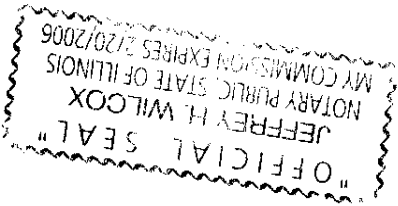 "OFFICIAL SEAL"
JEFFREY H. WILCOX
NOTARY PUBLIC STATE OF ILLINOIS
MY COMMISSION EXPIRES 2/20/2006